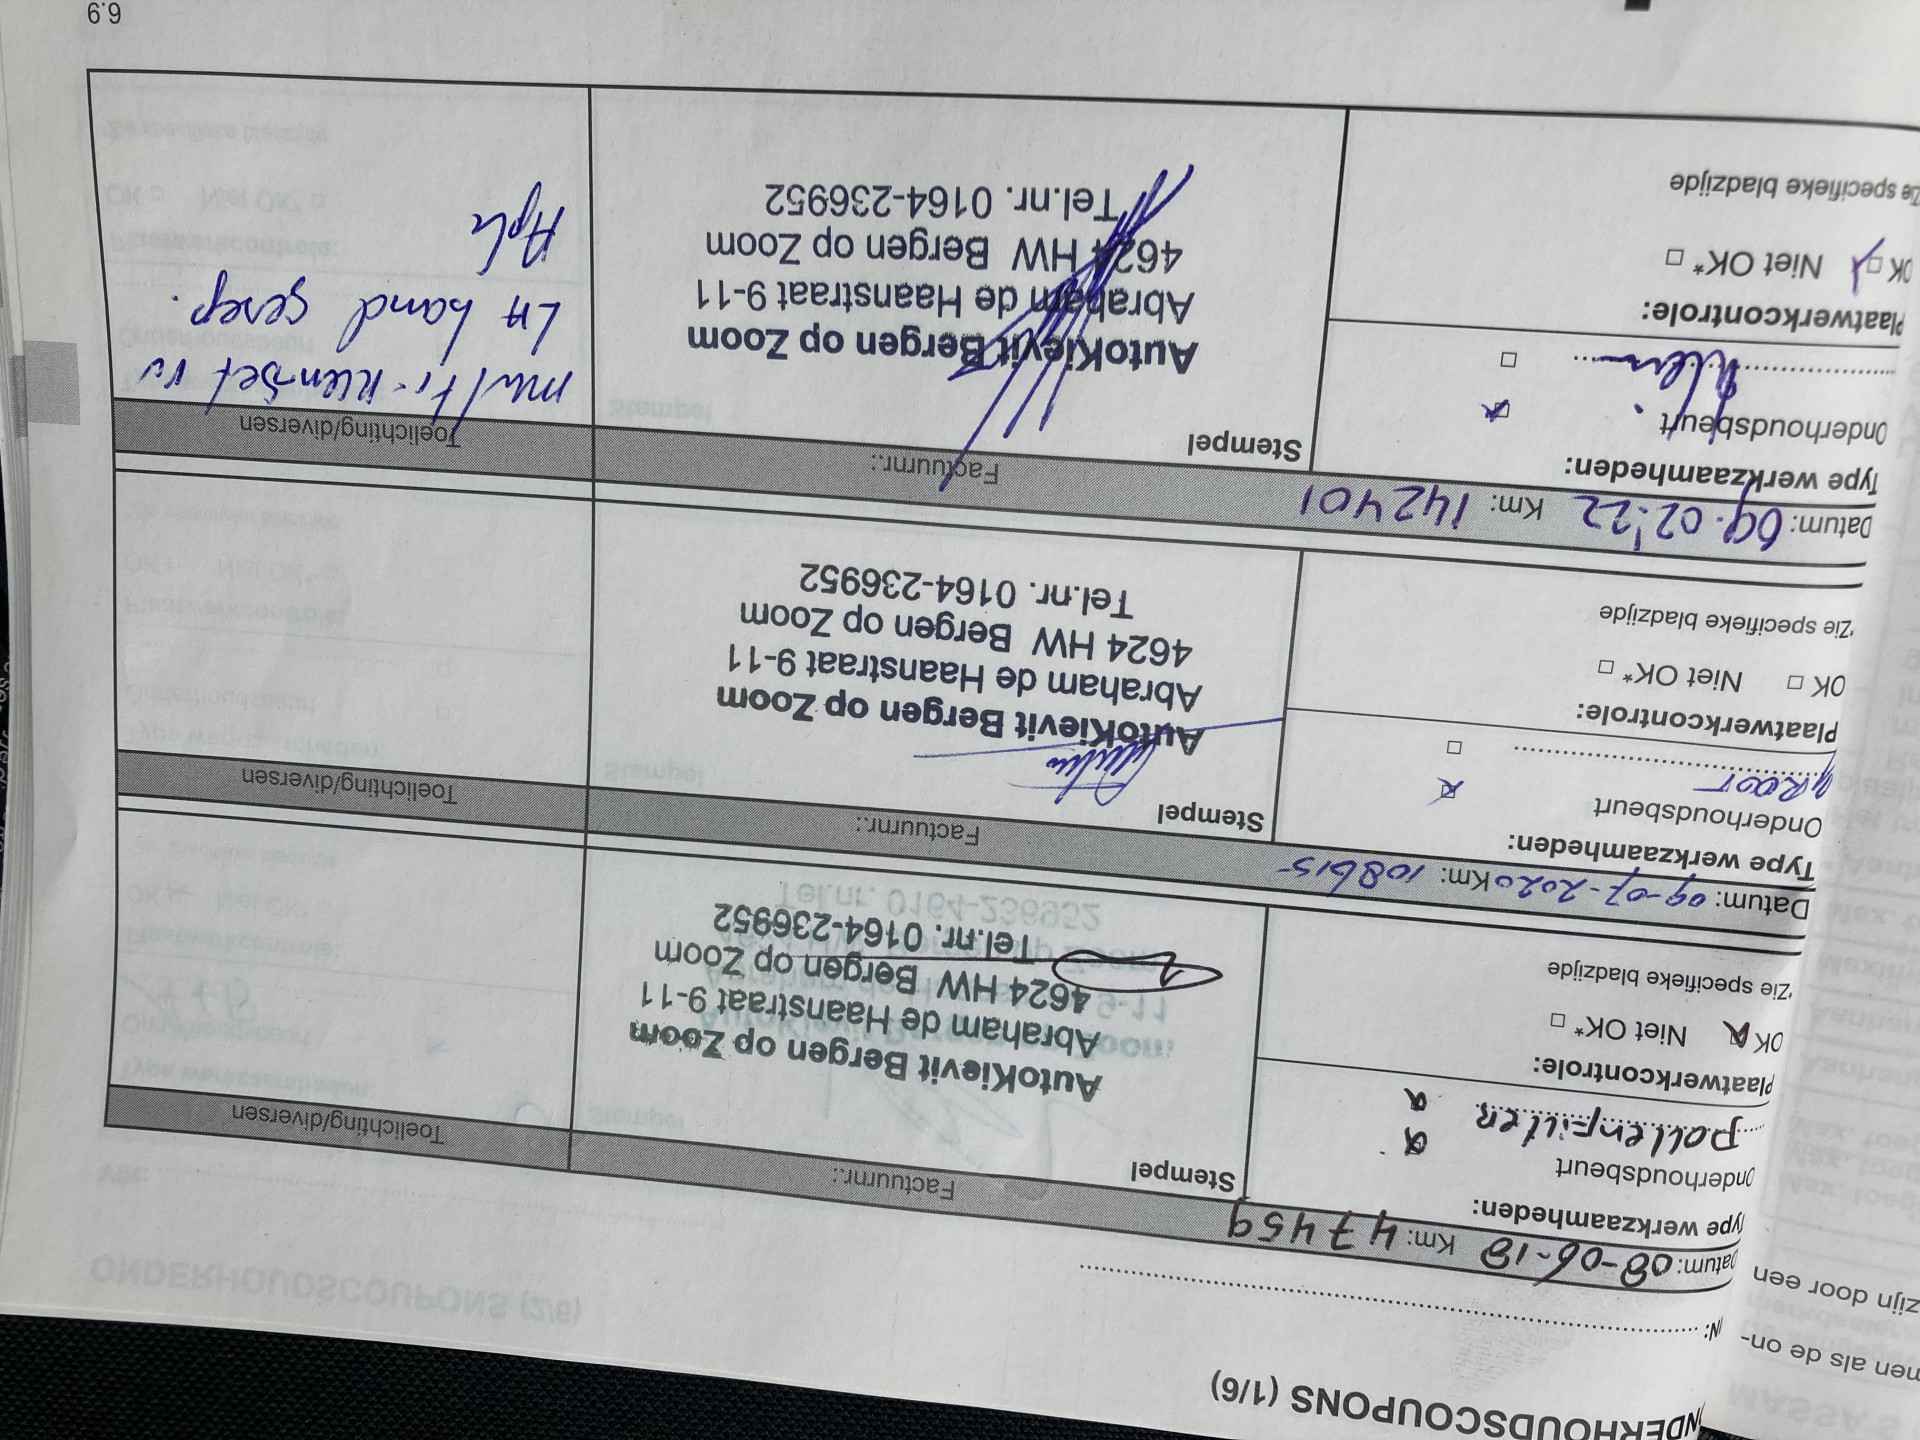 NDERHOUDSCOUPONS (1/6)
IN:
Datum: 08-06-18 Km: 47459 Factuurnr.: Toelichting/diversen
Type werkzaamheden:
Onderhoudsbeurt
pollenfilter
Plaatwerkcontrole:
OK Niet OK*
*Zie specifieke bladzijde
Stempel
AutoKievit Bergen op Zoom
Abraham de Haanstraat 9-11
4624 HW Bergen op Zoom
Tel.nr. 0164-236952
Datum: 09-07-2020 Km: 108615 Factuurnr.: Toelichting/diversen
Type werkzaamheden:
Onderhoudsbeurt
groot
Plaatwerkcontrole:
OK Niet OK*
*Zie specifieke bladzijde
Stempel
AutoKievit Bergen op Zoom
Abraham de Haanstraat 9-11
4624 HW Bergen op Zoom
Tel.nr. 0164-236952
Datum: 09.02.'22 Km: 142401 Factuurnr.: Toelichting/diversen
Type werkzaamheden:
Onderhoudsbeurt
Plaatwerkcontrole:
OK Niet OK*
*Zie specifieke bladzijde
Stempel
AutoKievit Bergen op Zoom
Abraham de Haanstraat 9-11
4624 HW Bergen op Zoom
Tel.nr. 0164-236952
band gerep.
6.9
nen als de on-
zijn door een